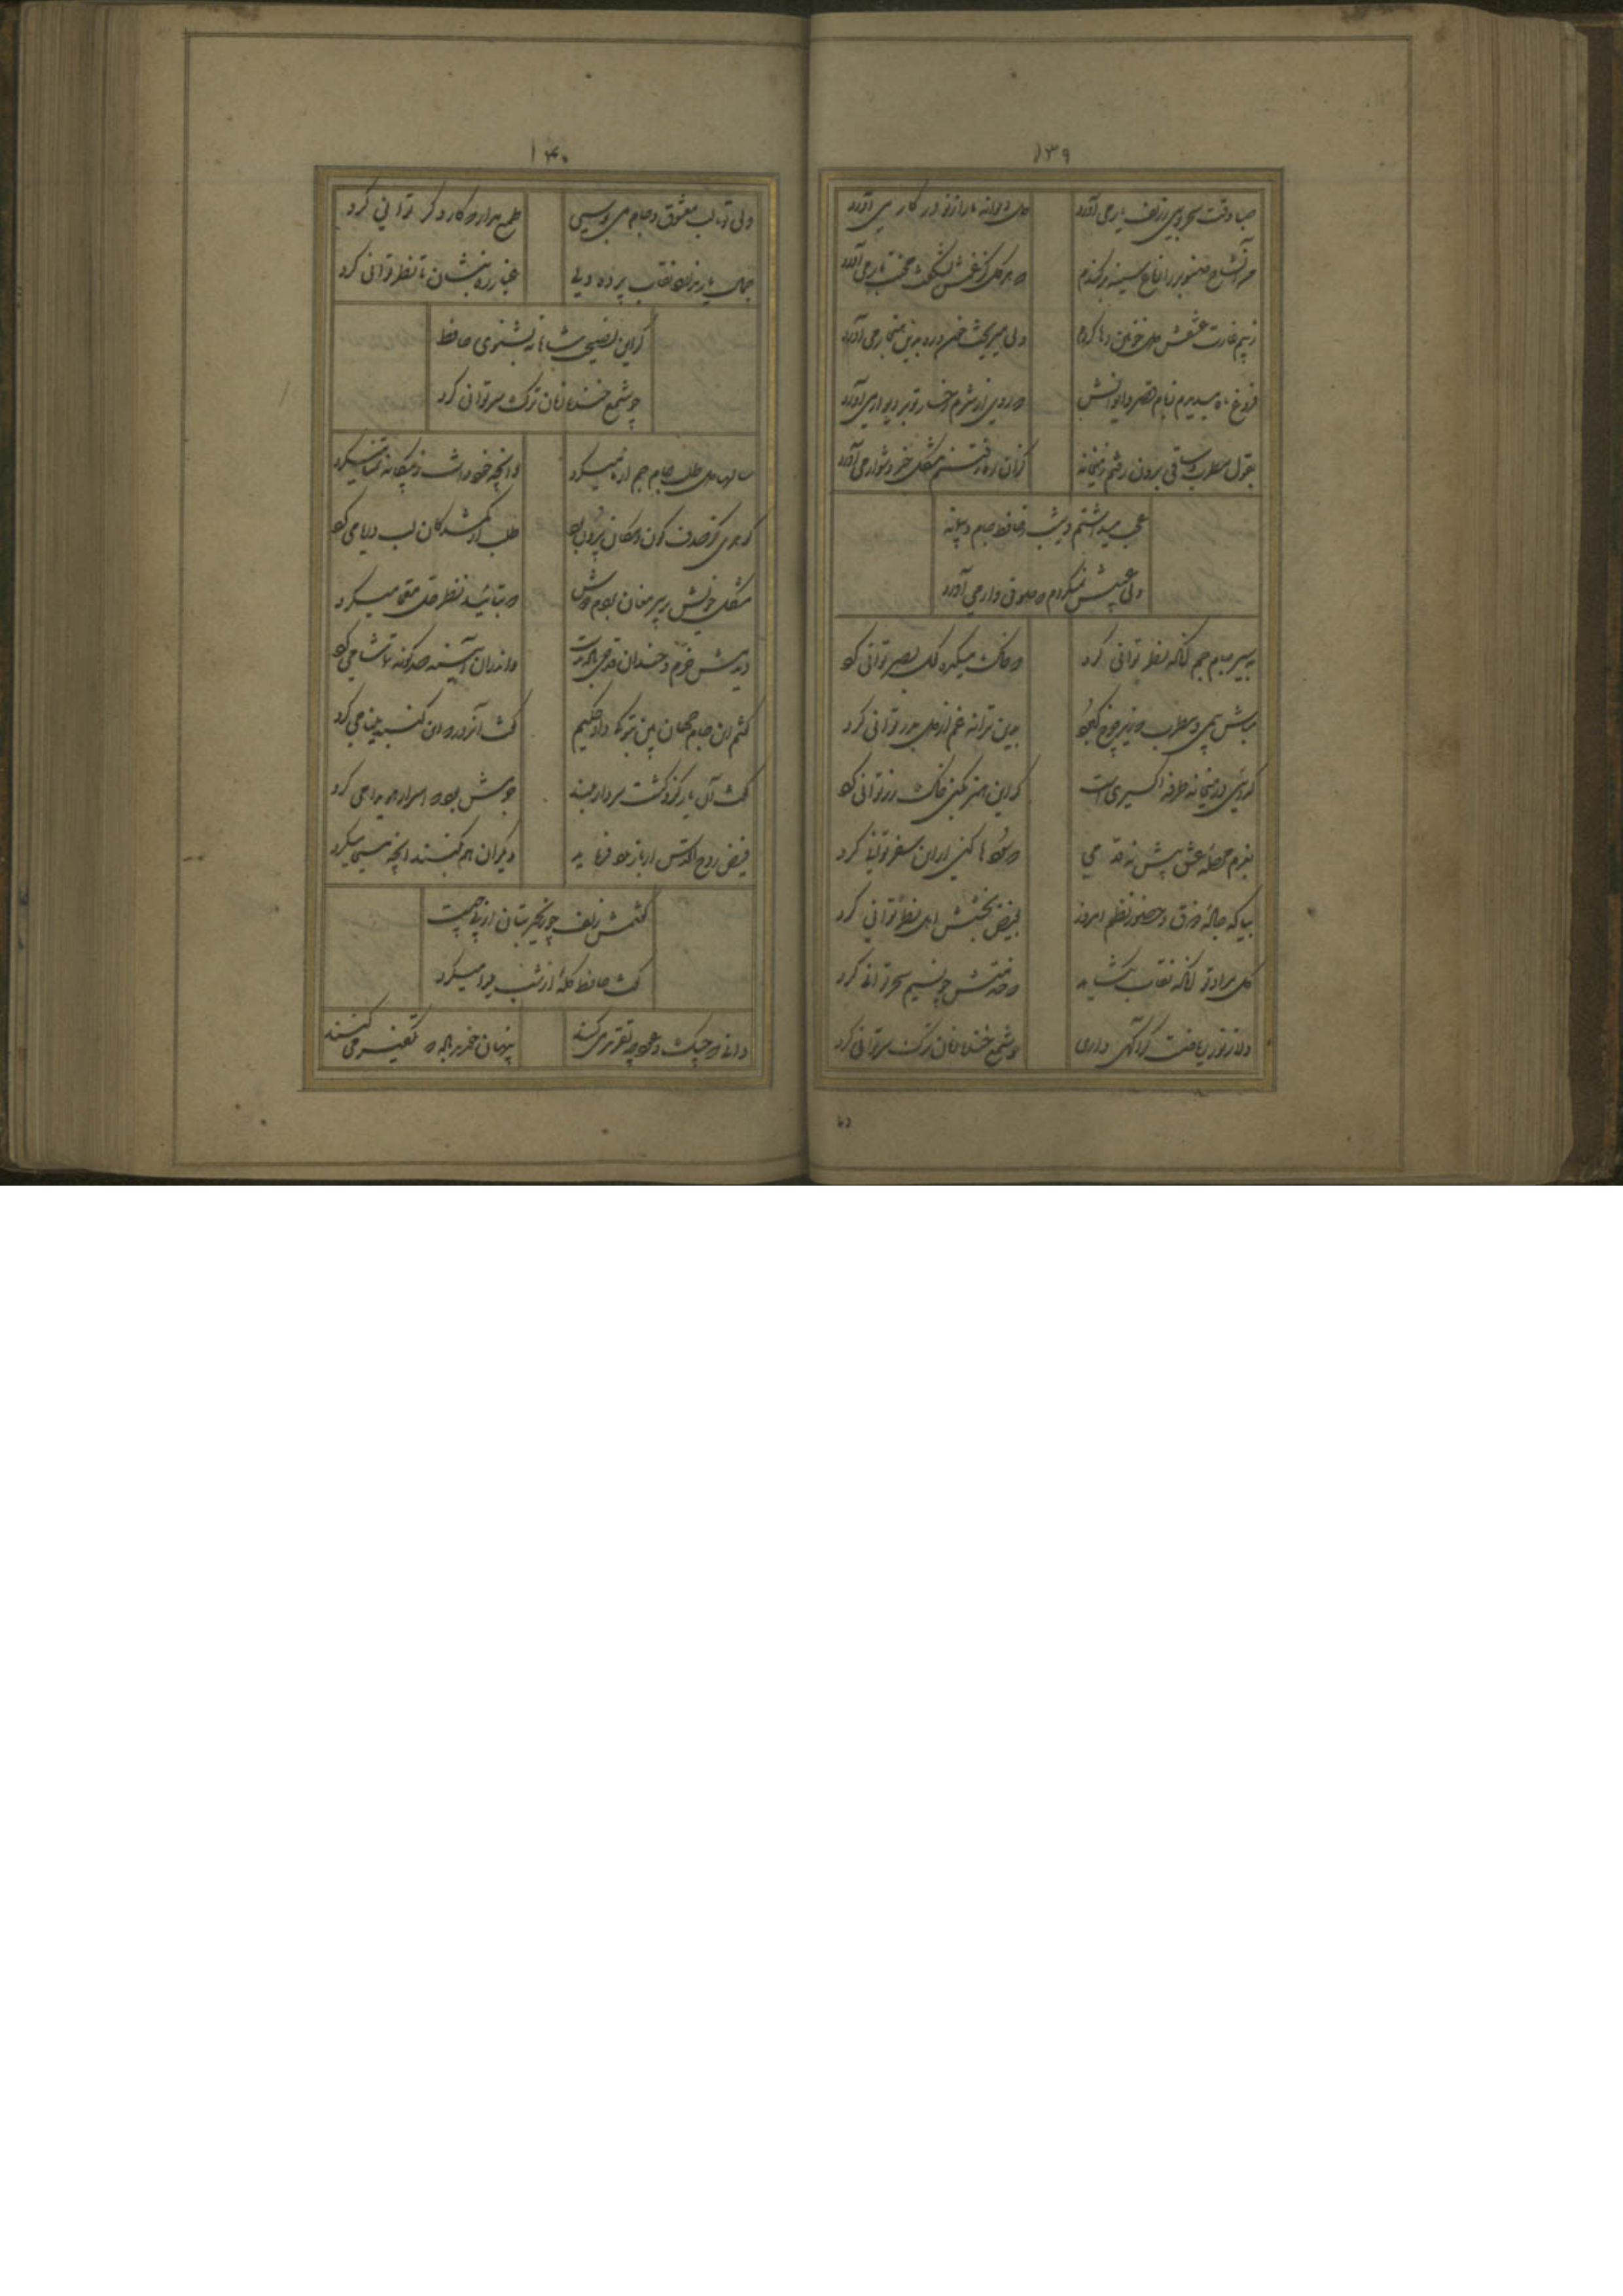 ۱۳۹
صبا وقت سحر بویی ز زلف یار می آورد
دل دیوانه ما را ز نو در کار می آورد
من آن شاخ صنوبر را ز باغ سینه برکندم
که هر گل کز غمش بشکفت محنت بار می آورد
ز بیم غارت عشقش دل خونین رها کردم
ولی میریخت خون و ره بدین هنجار می آورد
فروغ ماه میدیدم ز بام قصر و ایوانش
که روی از شرم آن رخسار تو بر دیوار می آورد
بقول مطرب و ساقی برون رفتم ز میخانه
کزان راه گران قاصد خبر دشوار می آورد
عجب میداشتم دیشب ز حافظ جام و پیمانه
ولی عیبش نمیکردم که صوفی وار می آورد
به سر جام جم آنگه نظر توانی کرد
که خاک میکده کحل بصر توانی کرد
مباش بی می و مطرب که زیر چرخ کبود
بدین ترانه غم از دل بدر توانی کرد
گدایی در میخانه طرفه اکسیری است
گر این هنر بکنی خاک زر توانی کرد
بعزم مرحله عشق پیش نه قدمی
که سودها کنی ار این سفر توانی کرد
بیا که چاره ذوق و حضور و نظم امور
بفیض بخشش اهل نظر توانی کرد
گل مراد تو آنگه نقاب بگشاید
که خدمتش چو نسیم سحر توانی کرد
دلا ز نور ریاضت گر آگهی داری
چو شمع خنده زنان ترک سر توانی کرد
۱۴۰
ولی تو تا لب معشوق و جام می بوسی
طمع مدار که کار دگر توانی کرد
جمال یار ندارد نقاب پرده ولی
غبار ره بنشان تا نظر توانی کرد
گر این نصیحت شاهانه بشنوی حافظ
چو شمع خنده زنان ترک سر توانی کرد
سالها دل طلب جام جم از ما میکرد
وآنچه خود داشت ز بیگانه تمنا میکرد
گوهری کز صدف کون و مکان بیرون بود
طلب از گمشدگان لب دریا می کرد
مشکل خویش بر پیر مغان بردم دوش
کو بتائید نظر حل معما میکرد
دیدمش خرم و خندان قدح می بدست
واندران آینه صد گونه تماشا می کرد
گفتم این جام جهان بین بتو کی داد حکیم
گفت آنروز که این گنبد مینا می کرد
گفت آن یار کزو گشت سر دار بلند
جرمش این بود که اسرار هویدا می کرد
فیض روح القدس ار باز مدد فرماید
دیگران هم بکنند آنچه مسیحا میکرد
گفتمش زلف چو زنجیر بتان از پی چیست
گفت حافظ گله از دل شیدا میکرد
دانی که چنگ و عود چه تقریر می کنند
پنهان خورید باده که تکفیر می کنند